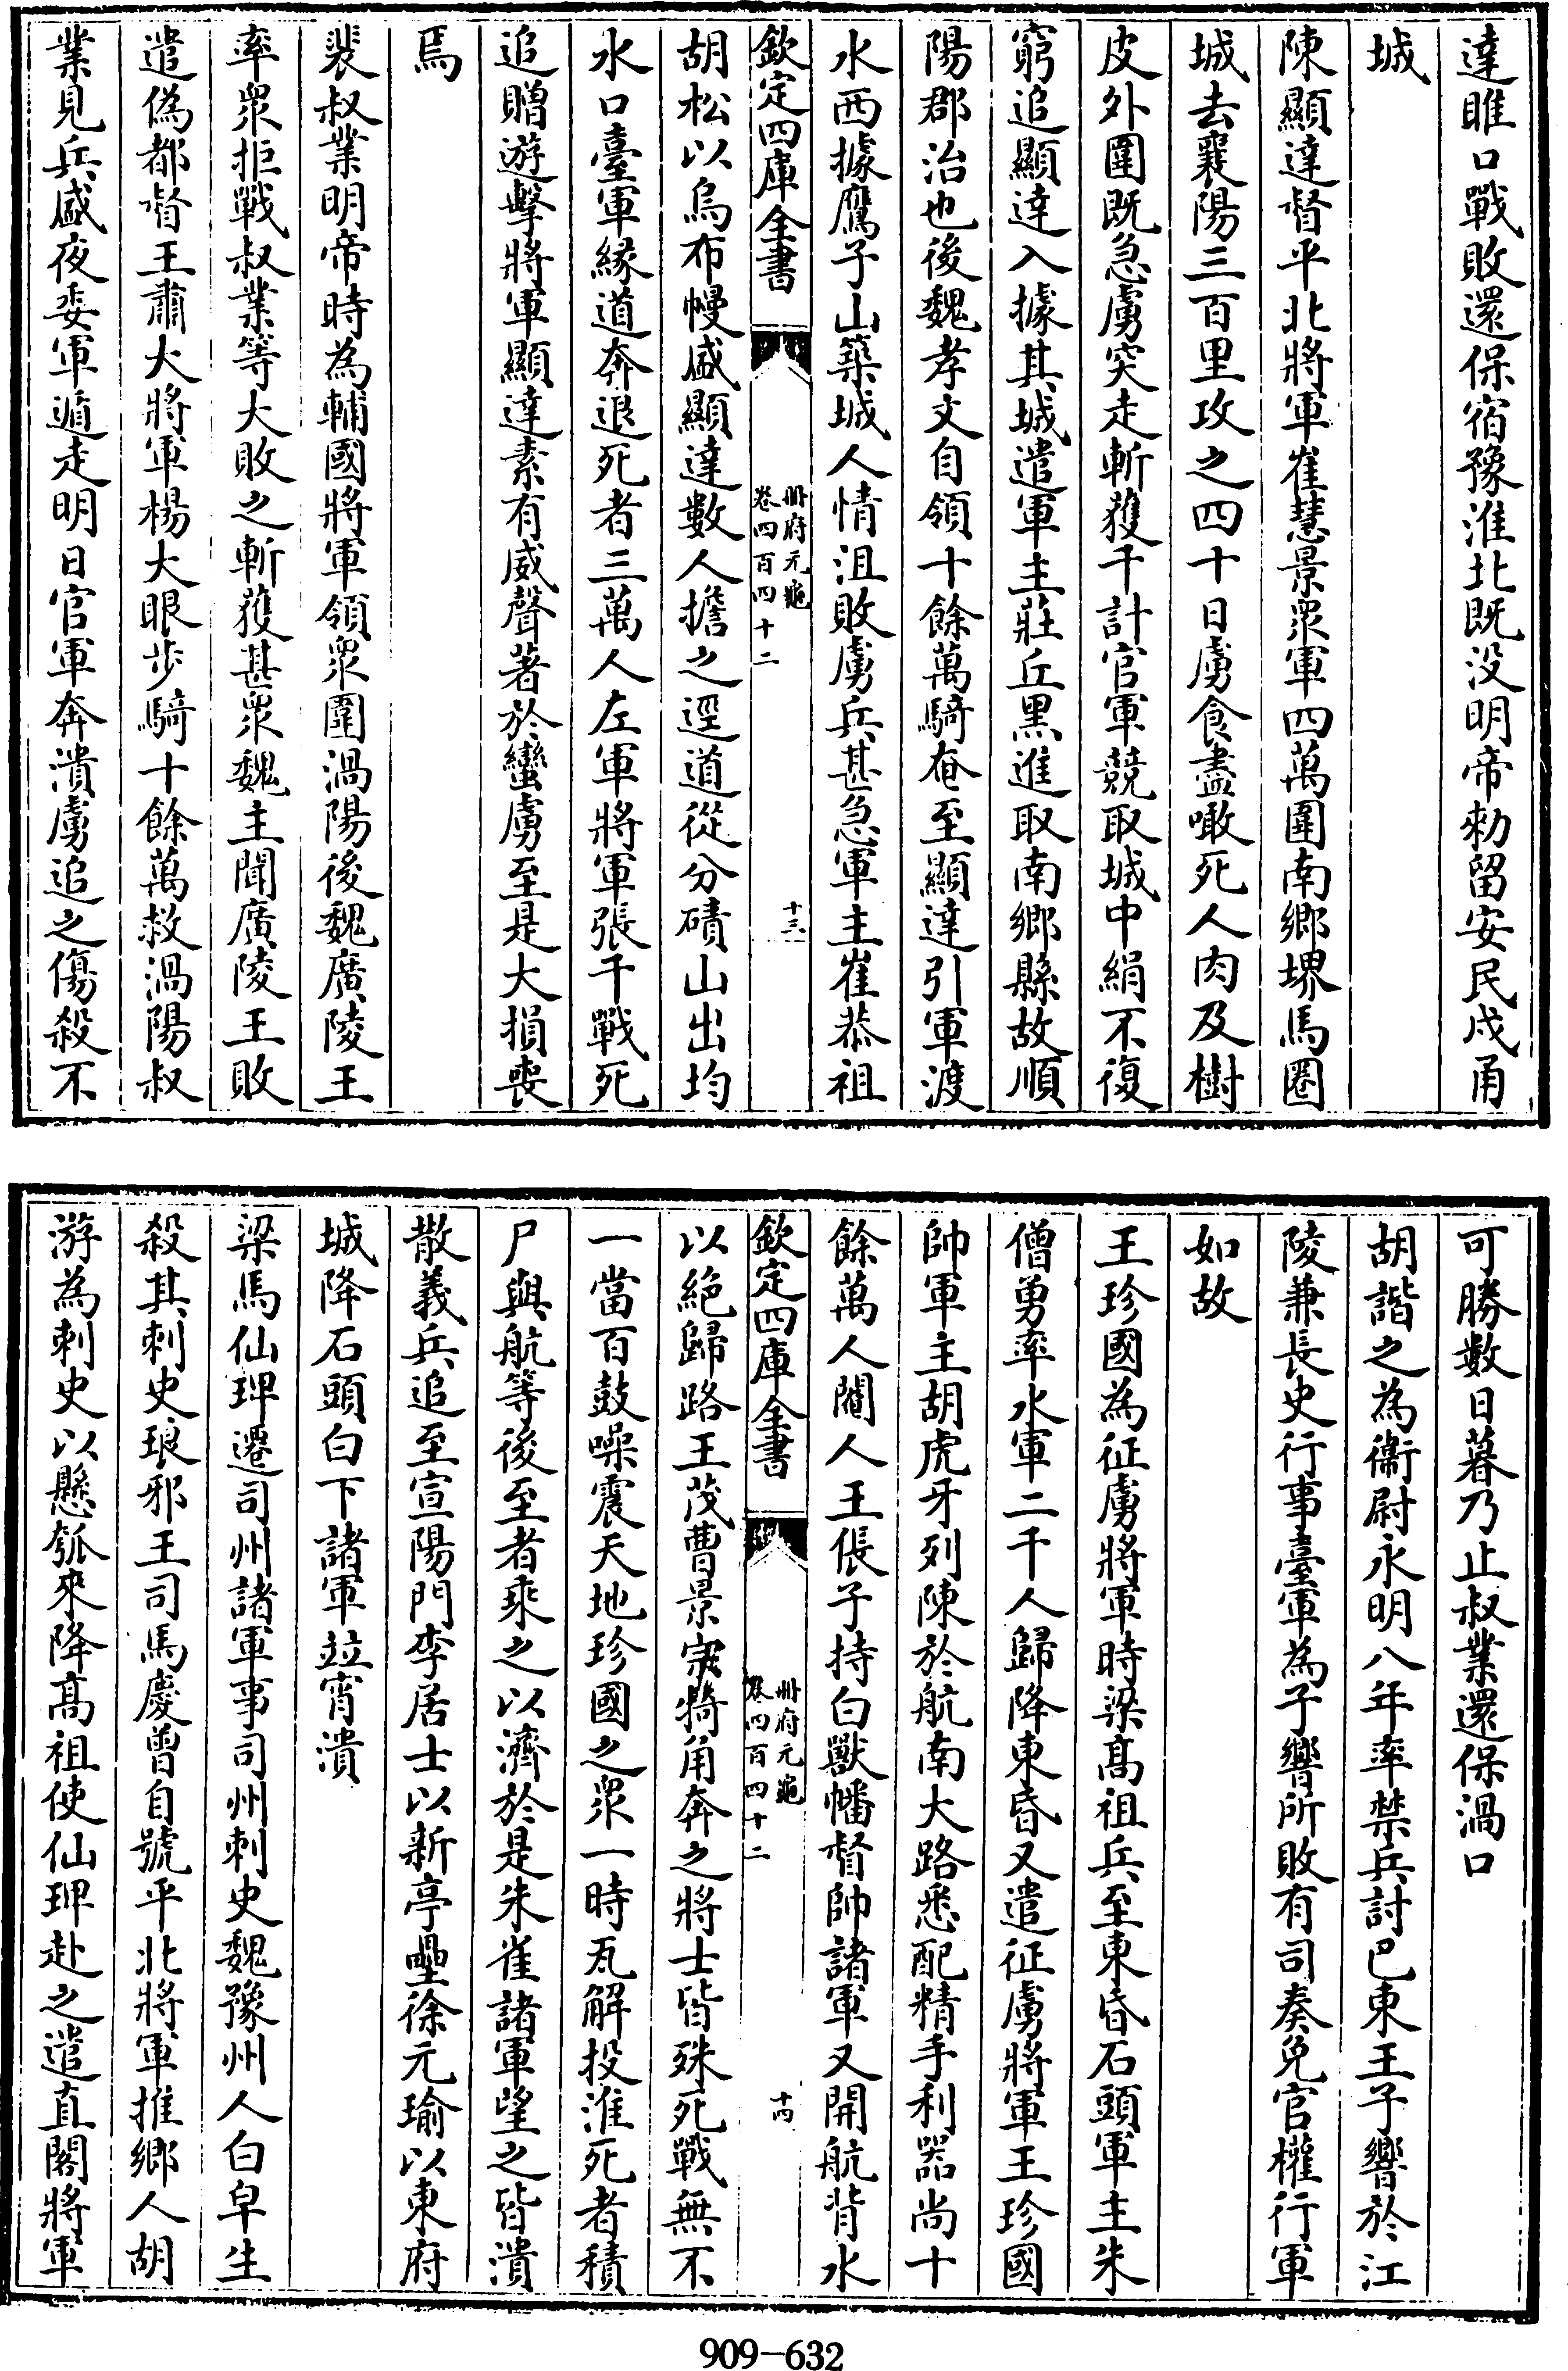 達睢口戰敗還保宿豫淮北既没明帝勅留安民戍甬
城
陳顯達督平北將軍崔慧景衆軍四萬圍南鄉堺馬圈
城去襄陽三百里攻之四十日虜食盡噉死人肉及樹
皮外圍既急虜突走斬獲千計官軍競取城中絹不復
窮追顯達入據其城遣軍主莊丘黑進取南鄉縣故順
陽郡治也後魏孝文自領十餘萬騎奄至顯達引軍渡
水西據鷹子山築城人情沮敗虜兵甚急軍主崔恭祖
欽定四庫全書
冊府元龜
卷四百四十二
十三
胡松以烏布幔盛顯達數人擔之逕道從分磧山出均
水口臺軍縁道奔退死者三萬人左軍將軍張千戰死
追贈遊擊將軍顯達素有威聲著於蠻虜至是大損喪
焉
裴叔業明帝時為輔國將軍領衆圍渦陽後魏廣陵王
率衆拒戰叔業等大敗之斬獲甚衆魏主聞廣陵王敗
遣偽都督王肅大將軍楊大眼步騎十餘萬救渦陽叔
業見兵盛夜委軍遁走明日官軍奔潰虜追之傷殺不
可勝數日暮乃止叔業還保渦口
胡諧之為衞尉永明八年率禁兵討巴東王子響於江
陵兼長史行事臺軍為子響所敗有司奏免官權行軍
如故
王珍國為征虜將軍時梁髙祖兵至東昏石頭軍主朱
僧勇率水軍二千人歸降東昏又遣征虜將軍王珍國
帥軍主胡虎牙列陳於航南大路悉配精手利器尚十
餘萬人閹人王倀子持白獸幡督帥諸軍又開航背水
欽定四庫全書
冊府元龜
卷四百四十二
十四
以絶歸路王茂曹景宗犄角奔之將士皆殊死戰無不
一當百鼓噪震天地珍國之衆一時瓦解投淮死者積
尸與航等後至者乘之以濟於是朱雀諸軍望之皆潰
散義兵追至宣陽門李居士以新亭壘徐元瑜以東府
城降石頭白下諸軍竝宵潰
梁馬仙琕遷司州諸軍事司州刺史魏豫州人白皁生
殺其刺史琅邪王司馬慶曾自號平北將軍推鄉人胡
游為刺史以懸瓠來降髙祖使仙琕赴之遣直閣將軍
909-632